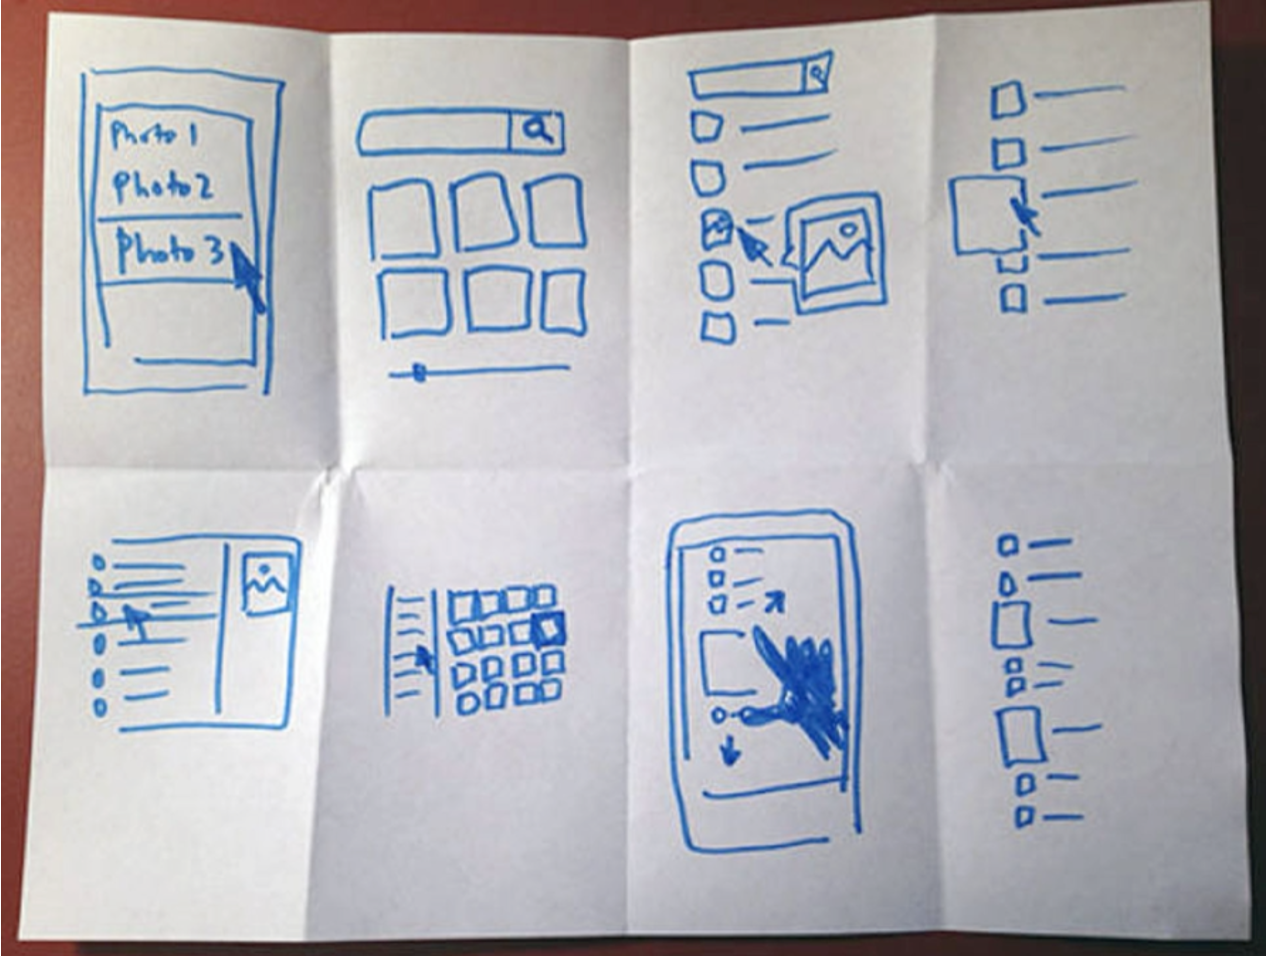 Photo 1
Photo 2
Photo 3